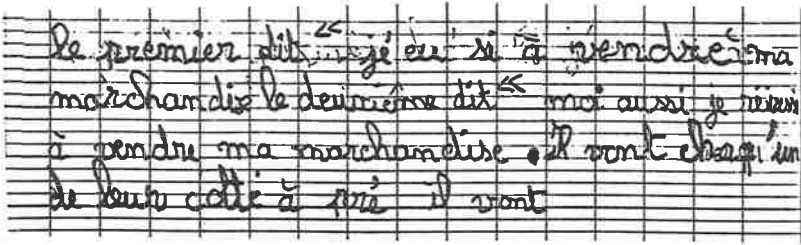 le premier dit " je eu si à vendre ma
marchandise le deuxième dit " moi aussi je réussi
à vendre ma marchandise. Il vont chaqu'un
de leur coté à pré il vont